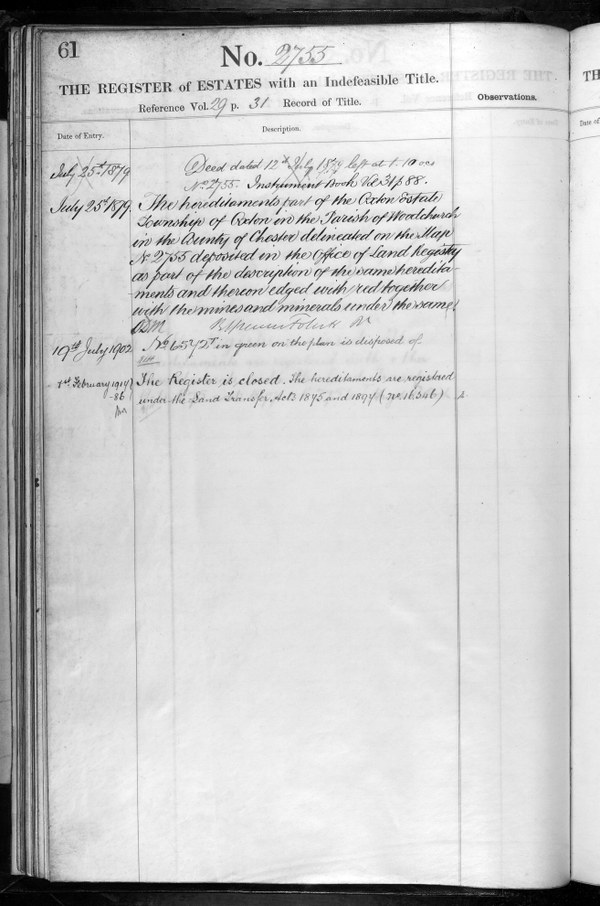 61
No. 2755
THE REGISTER of ESTATES with an Indefeasible Title.
Reference Vol. 29 p. 31. Record of Title.
Observations.
Date of Entry.
Description.
July 25th 1879
Deed dated 12th July 1879 left at
No 2755. Instrument Book Vol 31 p 88.
July 25th 1879.
The hereditaments part of the Oxton Estate
Township of Oxton in the Parish of Woodchurch
in the County of Chester delineated on the Map
No 2755 deposited in the Office of Land Registry
as part of the description of the same heredita-
ments and thereon edged with red together
with the mines and minerals under the same.
19th July 1902
in green on the plan is disposed of.
1st February 1914
The Register is closed. The hereditaments are registered
86
under the Land Transfer Acts 1875 and 1897 (No. 16346)
TH
Date of